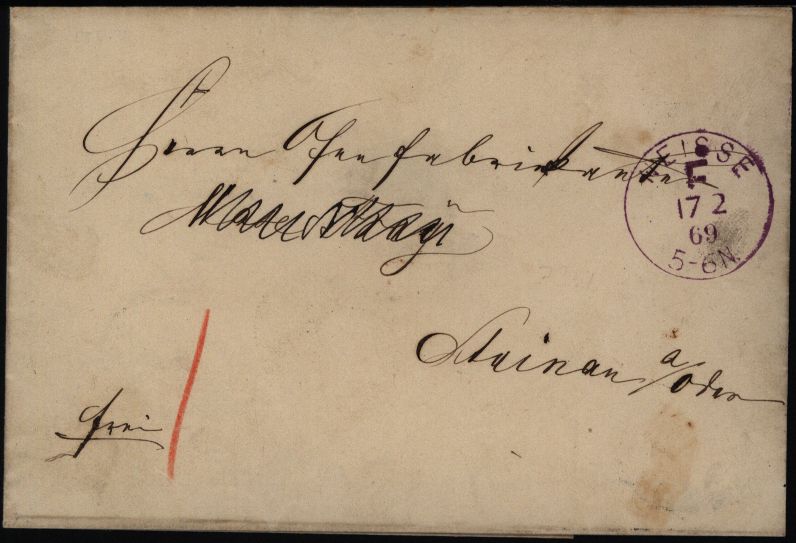 Herrn Ofenfabrikanten
NEISSE
17 2
69
5-6N.
Steinau a/Oder
frei